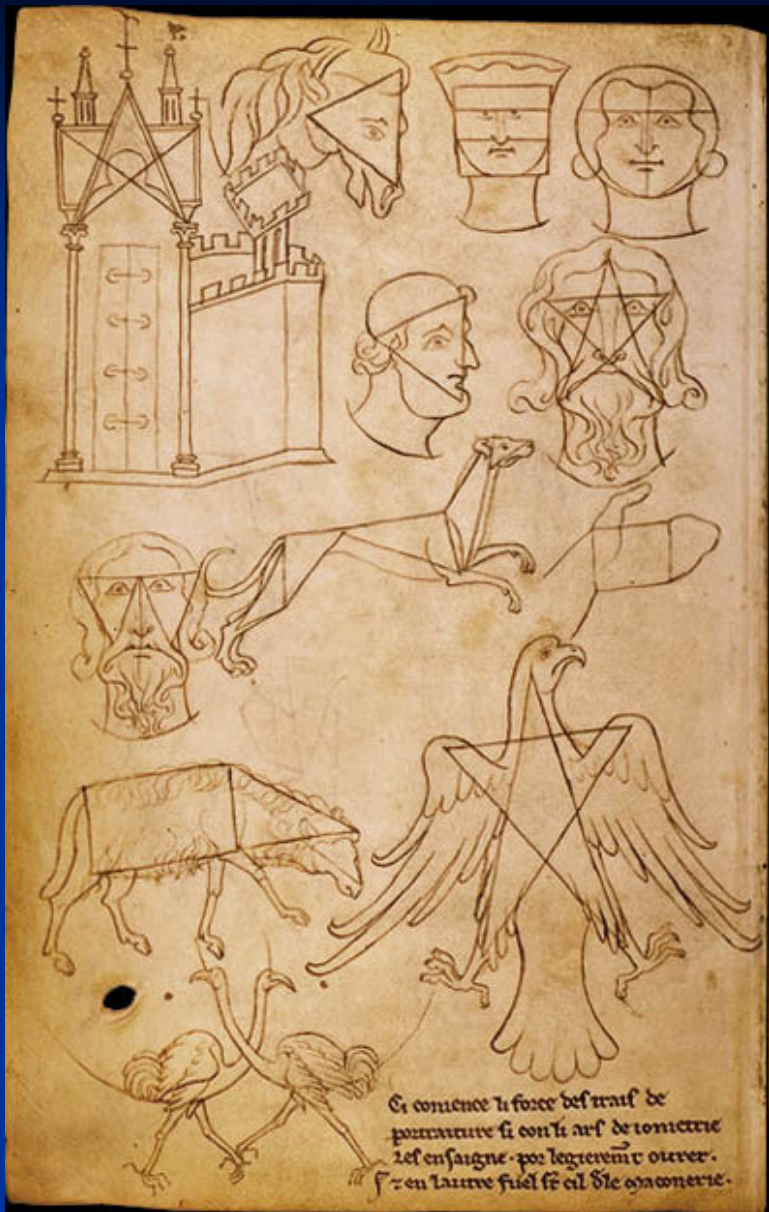 Ci comence li force des trais de
portraiture si con li ars de iometrie
les ensaigne · por legierem̄t ovrer ·
⁊ en lautre fuel st̄ cil de le maconerie ·